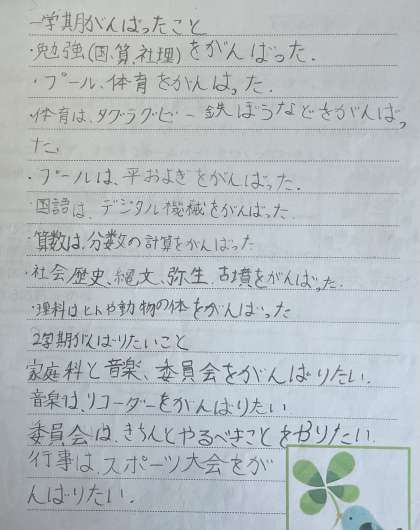 一学期がんばったこと
・勉強(国、算、社理)をがんばった.
・プール、体育をがんばった.
・体育は、タグラグビー 鉄ぼうなどをがんばっ
た.
・プールは、平およぎをがんばった.
国語は、デジタル機械をがんばった.
・算数は、分数の計算をがんばった
・社会歴史、縄文、弥生、古墳をがんばった.
・理科はヒトや動物の体をがんばった
2学期がんばりたいこと
家庭科と音楽、委員会をがんばりたい.
音楽は、リコーダーをがんばりたい
委員会は、きちんとやるべきことをやりたい.
行事は、スポーツ大会をが
んばりたい.